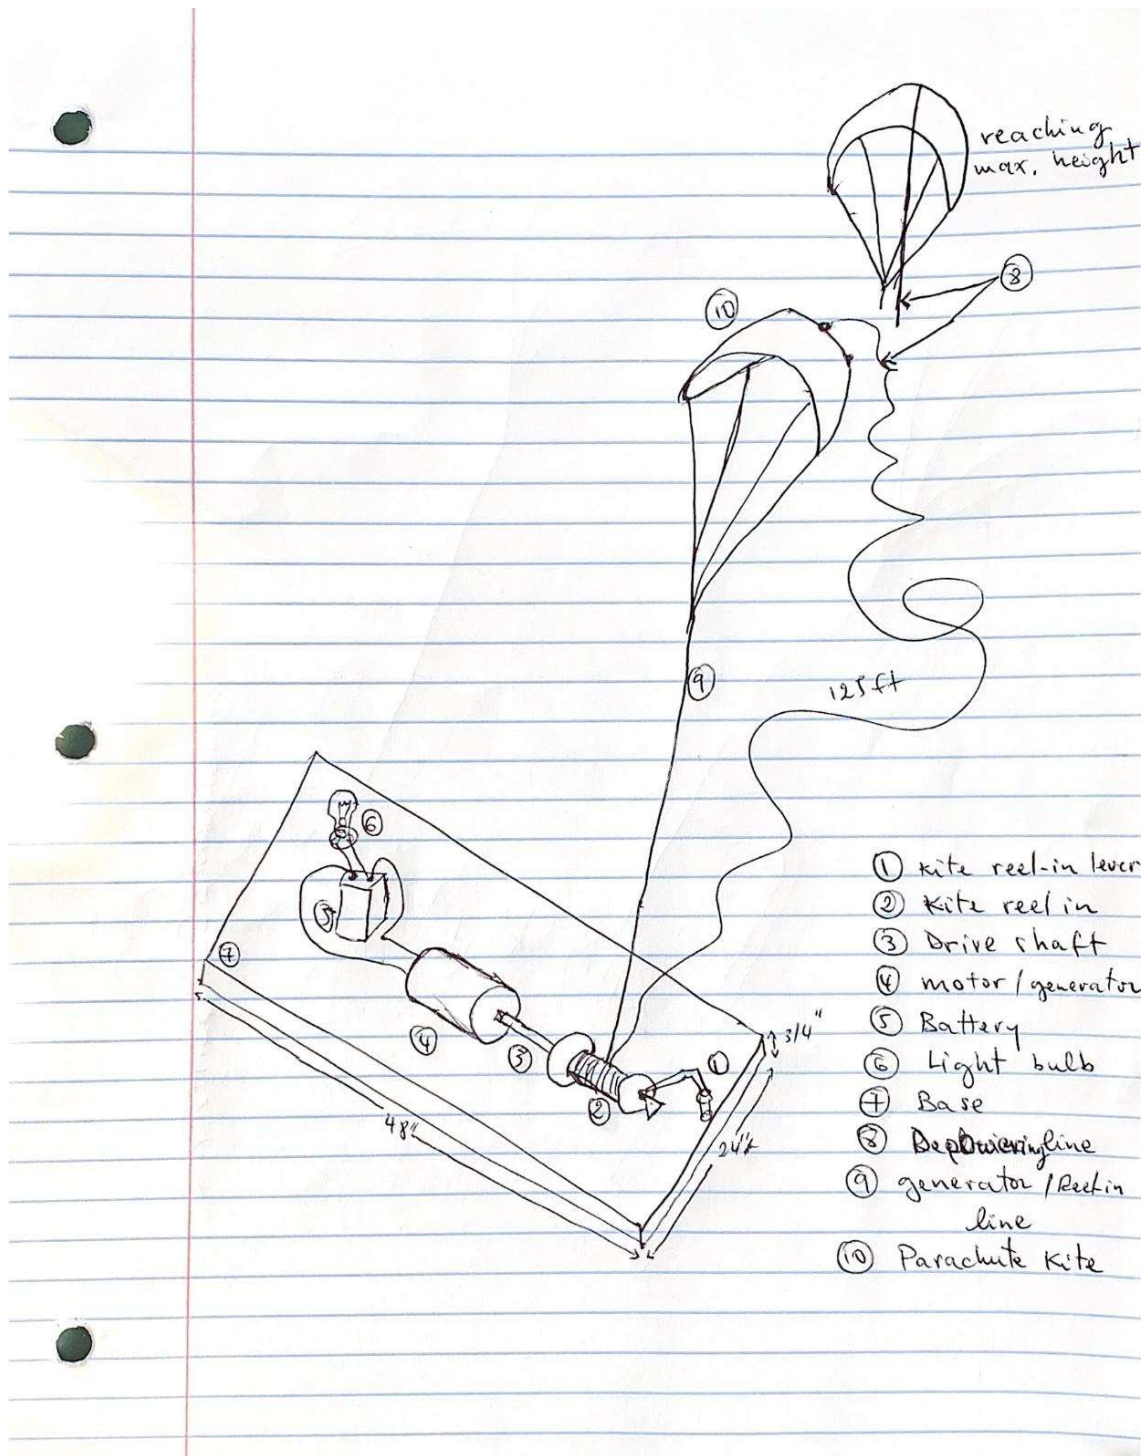 reaching
max. height
8
10
9
125ft
6
5
7
4
3
2
1
3/4"
48"
24"
1 Kite reel-in lever
2 Kite reel in
3 Drive shaft
4 motor/generator
5 Battery
6 Light bulb
7 Base
8 line
9 generator/Reel in
line
10 Parachute Kite